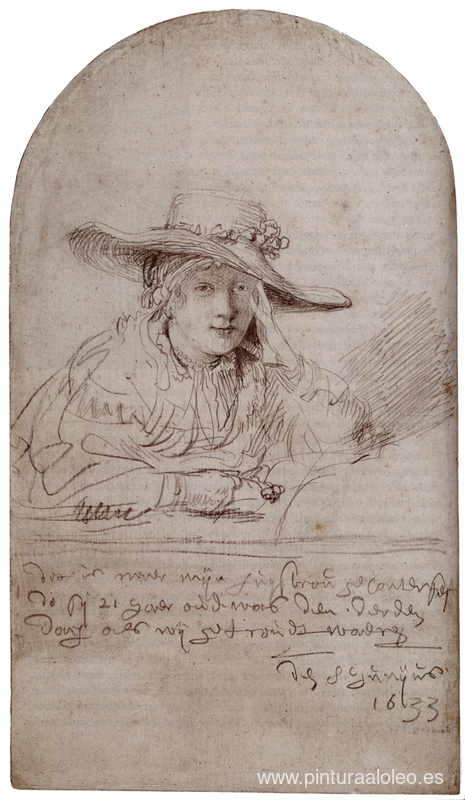 dit is naer mijn huijsvrou geconterfeÿt
do sij 21 jaer oud was den derden
dach als wij getroudt waeren
den 8 junijus
1633
www.pinturaaloleo.es